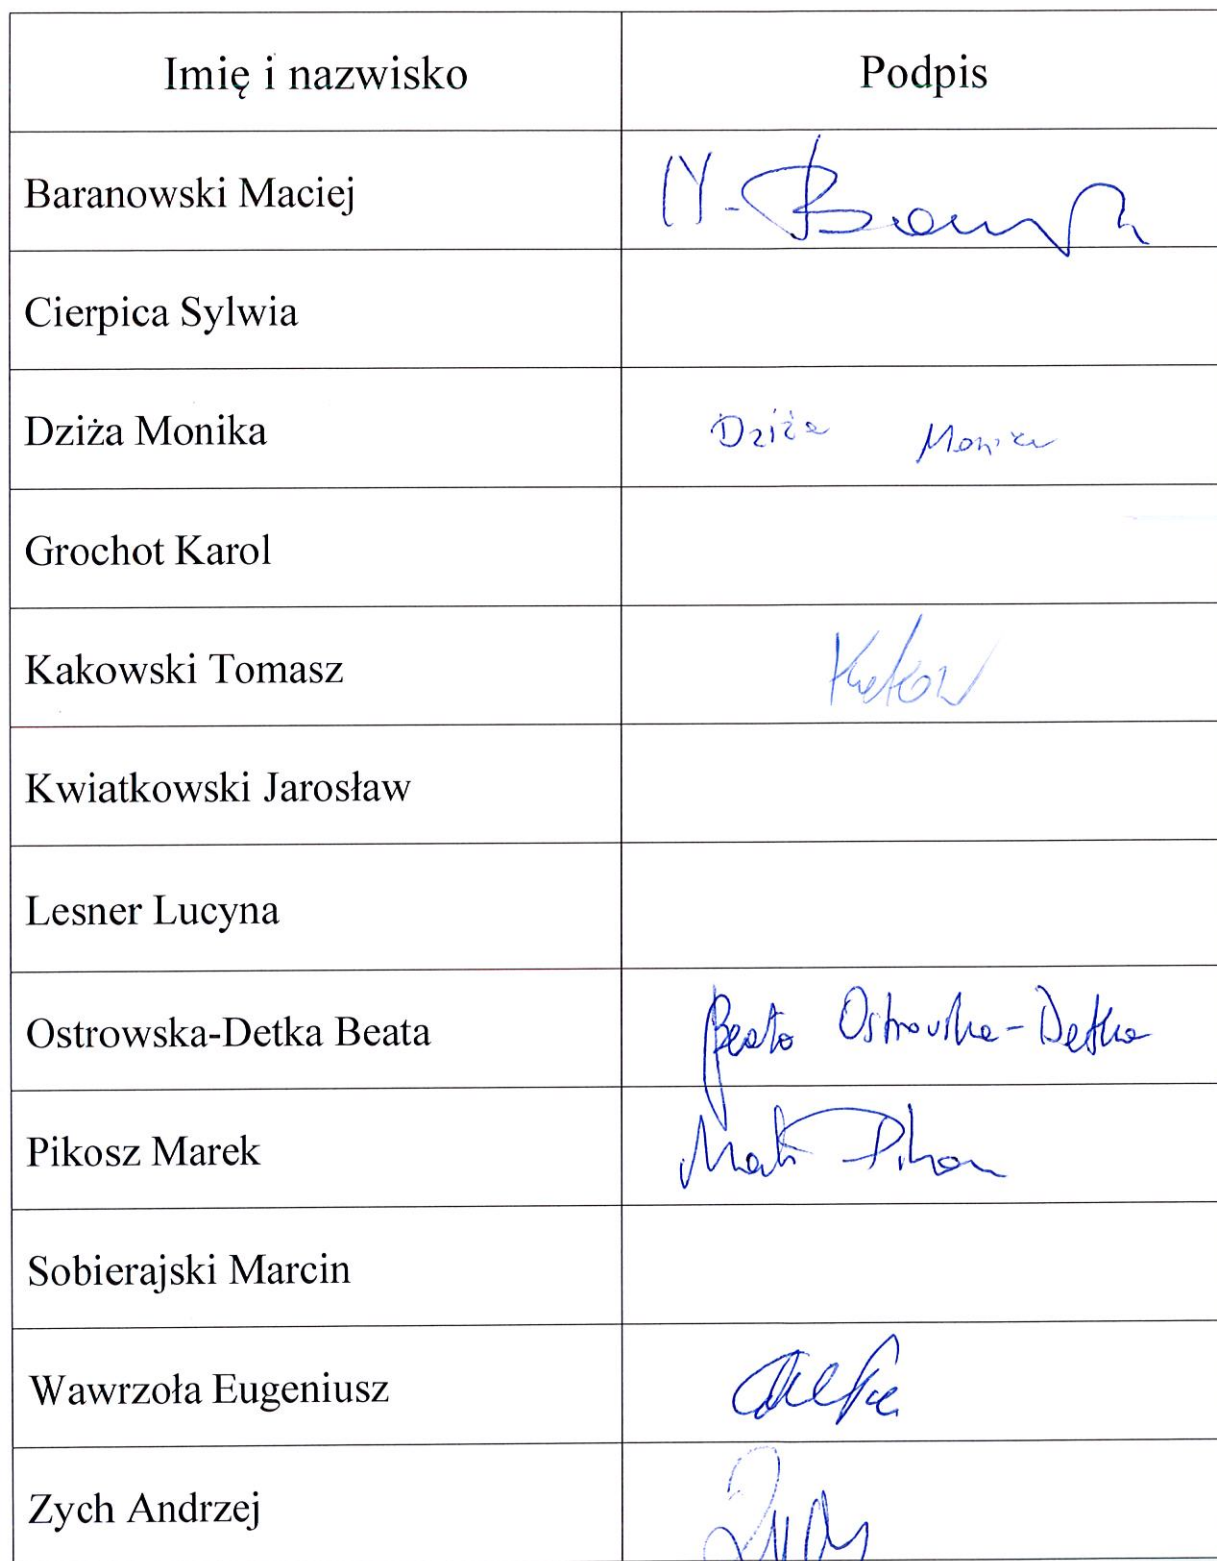 Imię i nazwisko Podpis
Baranowski Maciej
Cierpica Sylwia
Dziża Monika Dziża Monika
Grochot Karol
Kakowski Tomasz
Kwiatkowski Jarosław
Lesner Lucyna
Ostrowska-Detka Beata Beata Ostrowska-Detka
Pikosz Marek
Sobierajski Marcin
Wawrzoła Eugeniusz
Zych Andrzej